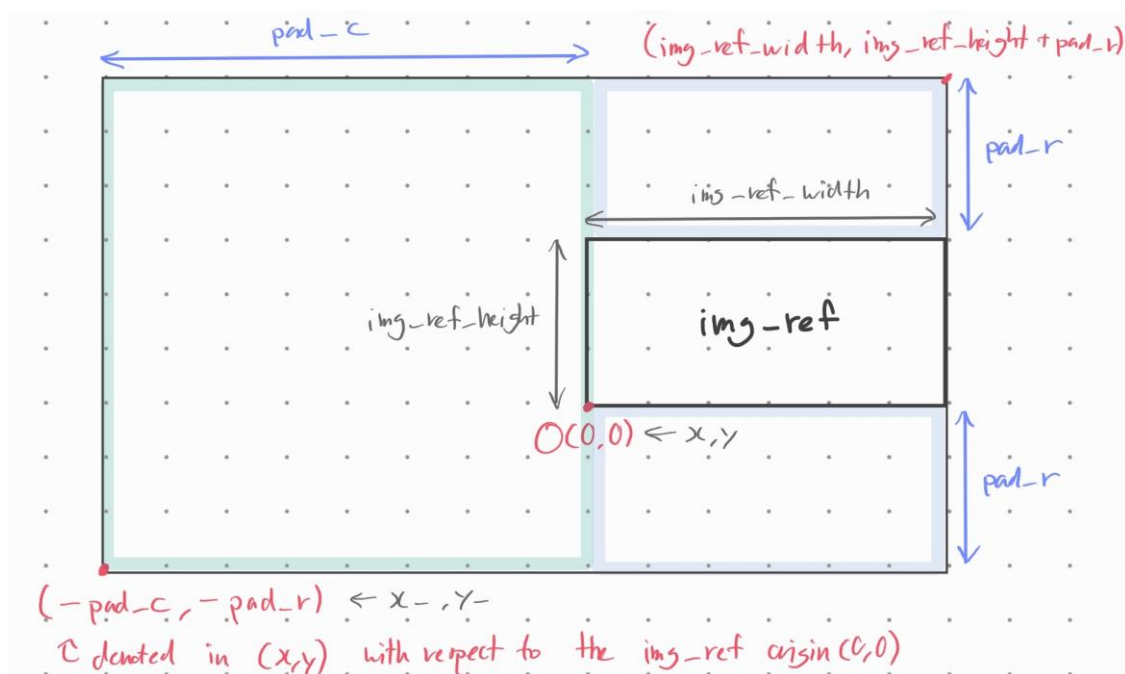 pad_c
(img_ref_width, img_ref_height + pad_r)
pad_r
img_ref_width
img_ref_height
img_ref
O(0,0) ← x,y
pad_r
(-pad_c, -pad_r) ← x_, y_
denoted in (x,y) with respect to the img_ref origin (0,0)